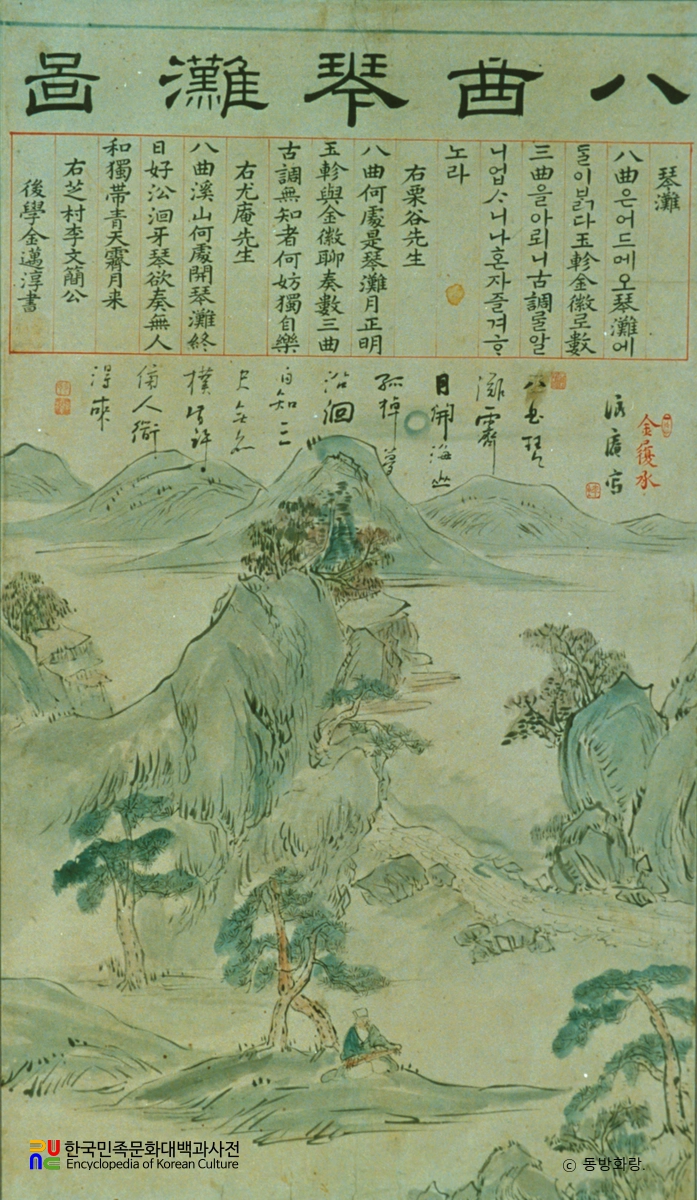 八曲琴灘啚
琴灘
八曲은어드메오琴灘에
ᄃᆞᆯ이ᄇᆞᆰ다玉軫金徽로數
三曲을아뢰니古調를알
니업스니나혼자즐겨ᄒᆞ
노라
右栗谷先生
八曲何處是琴灘月正明
玉軫與金徽聊奏數三曲
古調無知者何妨獨自樂
右尤庵先生
八曲溪山何處開琴灘終
日好沿洄牙琴欲奏無人
和獨帶青天霽月来
右芝村李文簡公
後學金邁淳書
八曲琴
灘霽
月開海山
孤棹
沿洄
自知三
尺無
許
傍人
得來
한국민족문화대백과사전
Encyclopedia of Korean Culture
© 동방화랑.